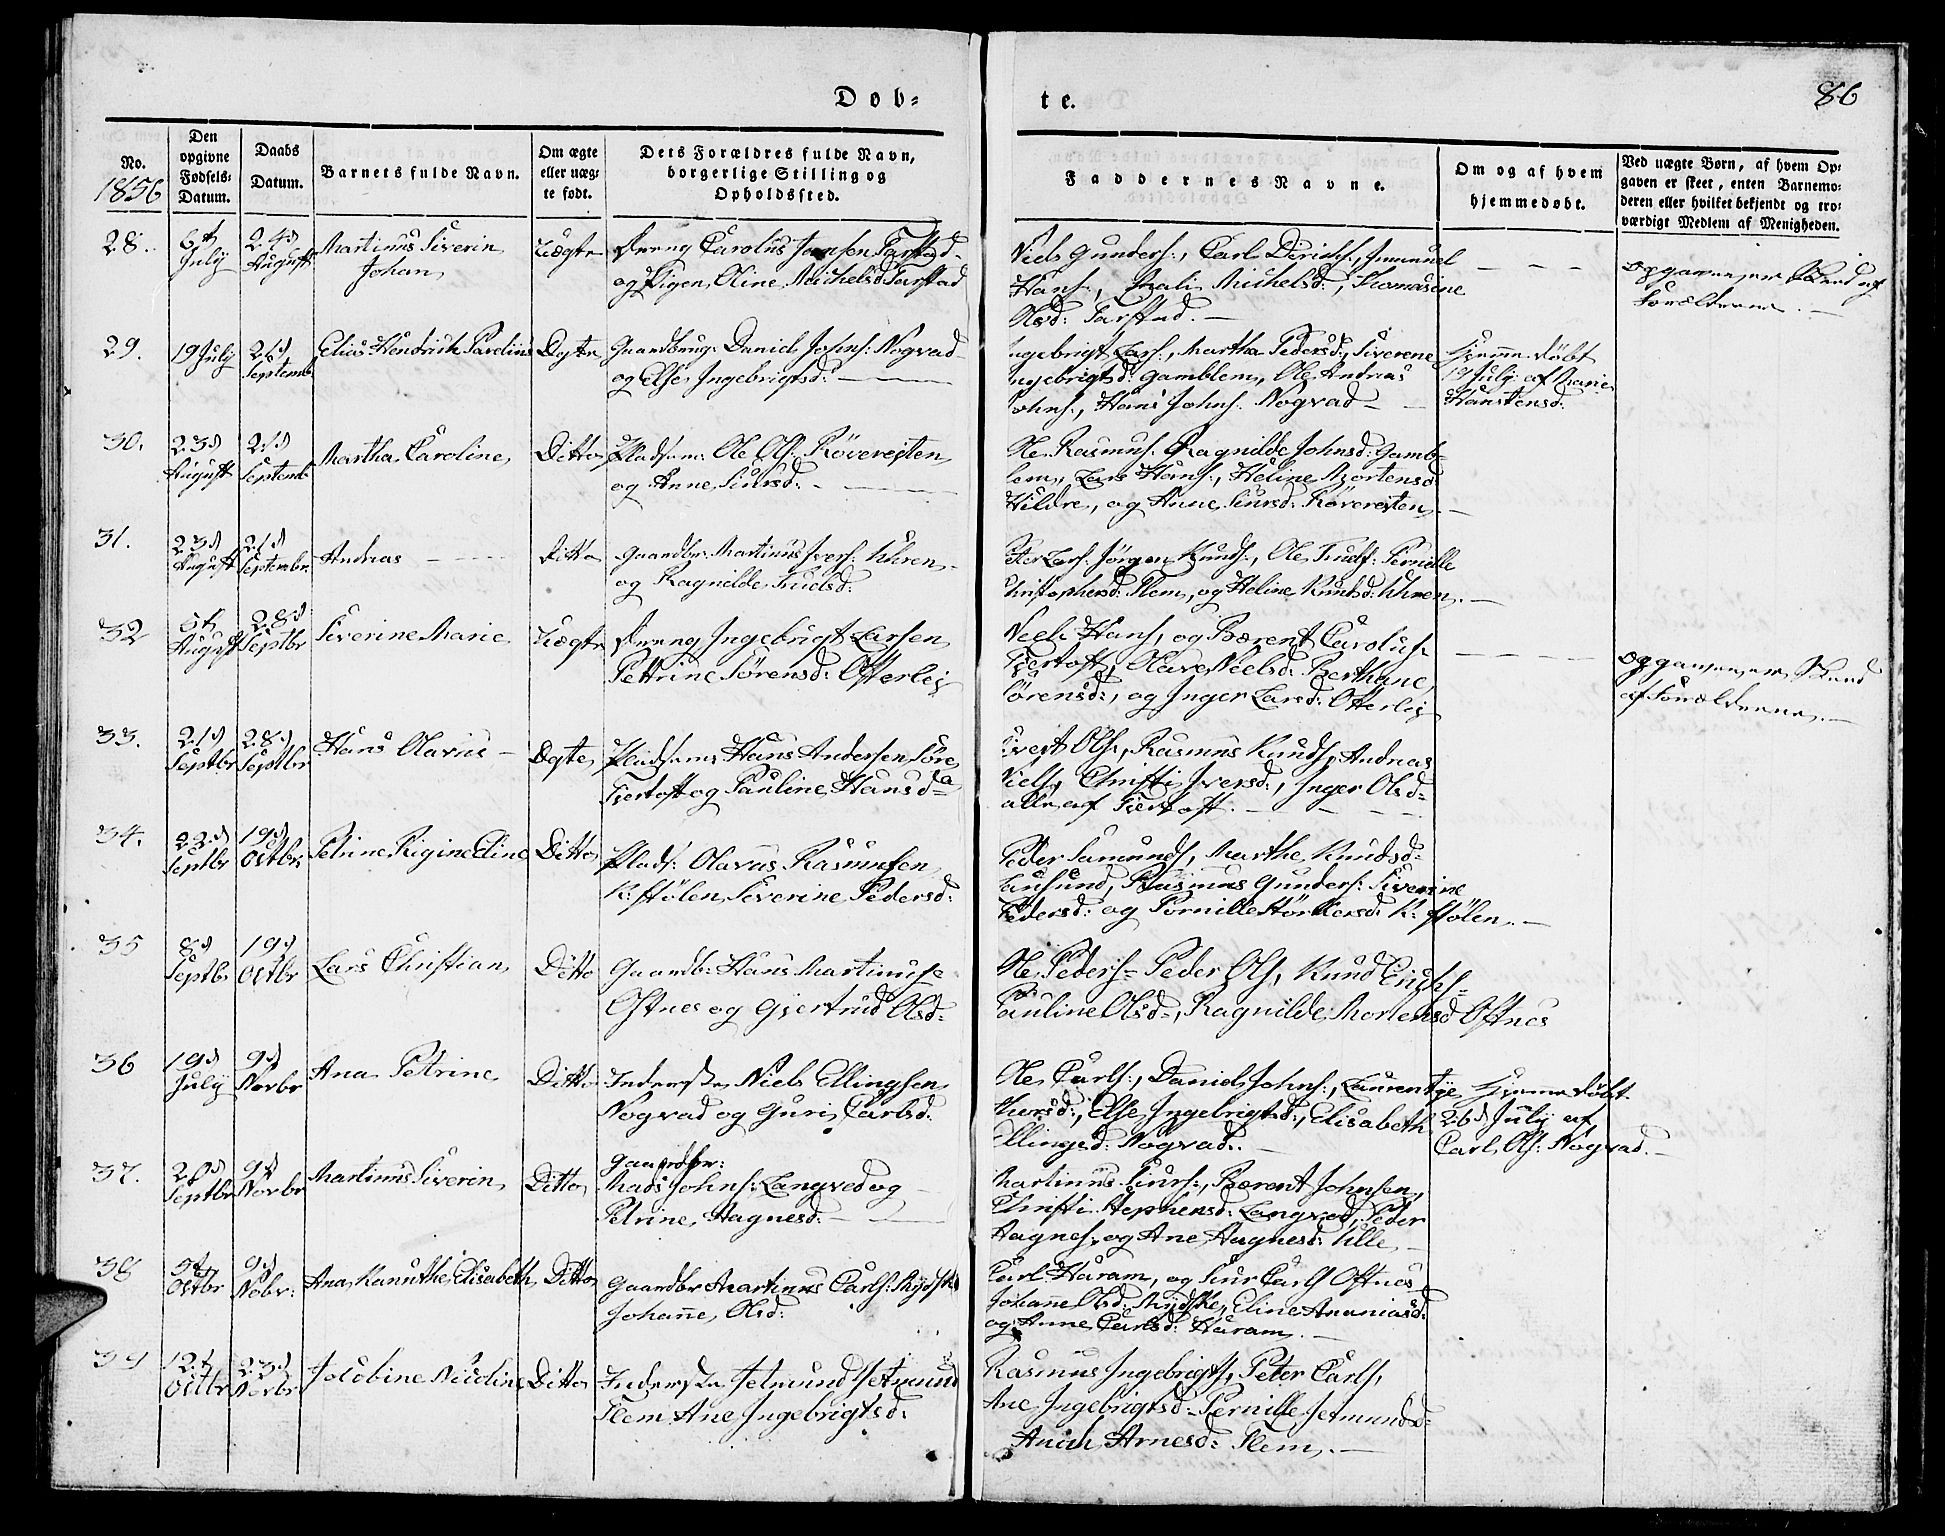 Døb-
te.
86
No.
1856
Den
opgivne
Fødsels-
Datum.
Daabs
Datum.
Barnets fulde Navn.
Om ægte
eller uæg-
te født.
Dets Forældres fulde Navn,
borgerlige Stilling og
Opholdssted.
Faddernes Navne.
Om og af hvem
hjemmedøbt.
Ved uægte Børn, af hvem Op-
gaven er skeet, enten Barnemo-
deren eller hvilket bekjendt og tro-
værdigt Medlem af Menigheden.
28.
6t
July
24d
August
Martinus Siverin
Johan
Uægte
Dreng Carolus Jansen Tarstad
og Pigen Oline Michelsd Tarstad
Niels Gunders:, Carl Dirichs:, Emanuel
Hans:, Mali Michelsd:, Thomasine
Olsd: Tarstad. —
Opgaven er skeed af
Forældrene. —
29.
19 July
21d
Septemb.
Elias Hendrich Parelius
Ægte
Gaardbrug: Daniel Johns: Nogvad
og Else Ingebrigtsd: —
Ingebrigt Lars:, Martha Pedersd:, Siverene
Ingebrigtsd: Gamblem, Ole Andreas
Johns:, Hans Johns: Nogvad —
Hjemmedøbt
19 July af Marie
Hanstensd:
30.
23d
August
21d
Septemb.
Martha Caroline
Ditto
Pladsem: Ole Ols: Röverejten
og Anne Siursd: —
Ole Rasmus: Ragnilde Johnsd: Gamb-
lem, Lars Hans:, Heline Mortensd
Hildre, og Anne Siursd: Röverejten. —
31.
23d
August
21d
Septembr.
Andreas —
Ditto
Gaardbr: Martinus Ivers: Uhren
og Ragnilde Truelsd:
Peter Lars: Jörgen Knuds:, Ole Truels: Pernille
Christophersd: Slem, og Heline Knudsd: Uhren. —
32
5t
August
28d
Septbr
Siverine Marie
Uægte
Dreng Ingebrigt Larsen
Pettrine Sörensd: Otterlej
Niels Hans, og Bærent Carolus:
Fjertoft, Olave Nielsd: Berthane
Sörensd:, og Inger Larsd: Otterlej
Opgaven er skeed
af Forældrene. —
33.
21d
Septbr
28d
Septbr
Hans Olavus —
Ægte
Pladsem: Hans Andersen Söre
Fjertoft og Pauline Hansda
Sivert Ols:, Rasmus Knuds, Andreas
Niels, Christi Iversd:, Inger Olsd=
alle af Fjertoft. —
34.
22d
Septbr
19d
Octbr:
Petrine Rigine Eline
Ditto
Plads: Olavus Rasmusen
K:stölen, Siverine Pedersd:
Peder Samunds, Marthe Knudsd=
Lausund, Rasmus Gunders: Siverine
Pedersd: og Pernille Störkersd: K:stölen. —
35
8d
Septbr
19d
Octbr
Lars Christian
Ditto
Gaardb: Hans Martinus=
Ostnes og Gjertrud Olsd=
Ole Peders= Peder Ols, Knud Erichs=
Pauline Olsd=, Ragnilde Mortensd Ostnes
36
19d
July
9d
Novbr
Ana Petrine
Ditto
Inderste Niels Ellingsen
Nogvad og Guri Carlsd:
Ole Carls:, Daniel Johns:, Laurentze
Iversd:, Else Ingebrigtsd:, Elisabeth
Ellingsd: Nogvad. —
Hjemmedøbt
26d July af
Carl Ols: Nogvad. —
37.
20d
Septbr
9d
Novbr
Martinus Siverin
Ditto
Gaardbr:
Mads Johns: Langved og
Petrine Hagnesd: —
Martinus Siurs:, Bærent Johnsen,
Christi Stephensd: Langved, Peder
Hagnes, og Ane Hagnesd: Ulle —
38
5t
Octbr
9d
Nobr:
Ana Kanuthe Elisabeth
Ditto
Gaardbr Martinus Carls: Mydske
Johanne Olsd:
Carl Haram, og Siur Carls Ostnes
Johanne Olsd: Mydske, Eline Ananiasd:
og Anne Carlsd: Haram. —
39
12t
Octbr
23d
Novbr
Jacobine Nicoline
Ditto
Inderste Jetmund Jetmund
Slem Ane Ingebrigtsd:
Rasmus Ingebrigts, Peter Carls,
Ane Ingebrigtsd: Pernille Jetmundsd=
Arnesd: Slem. —